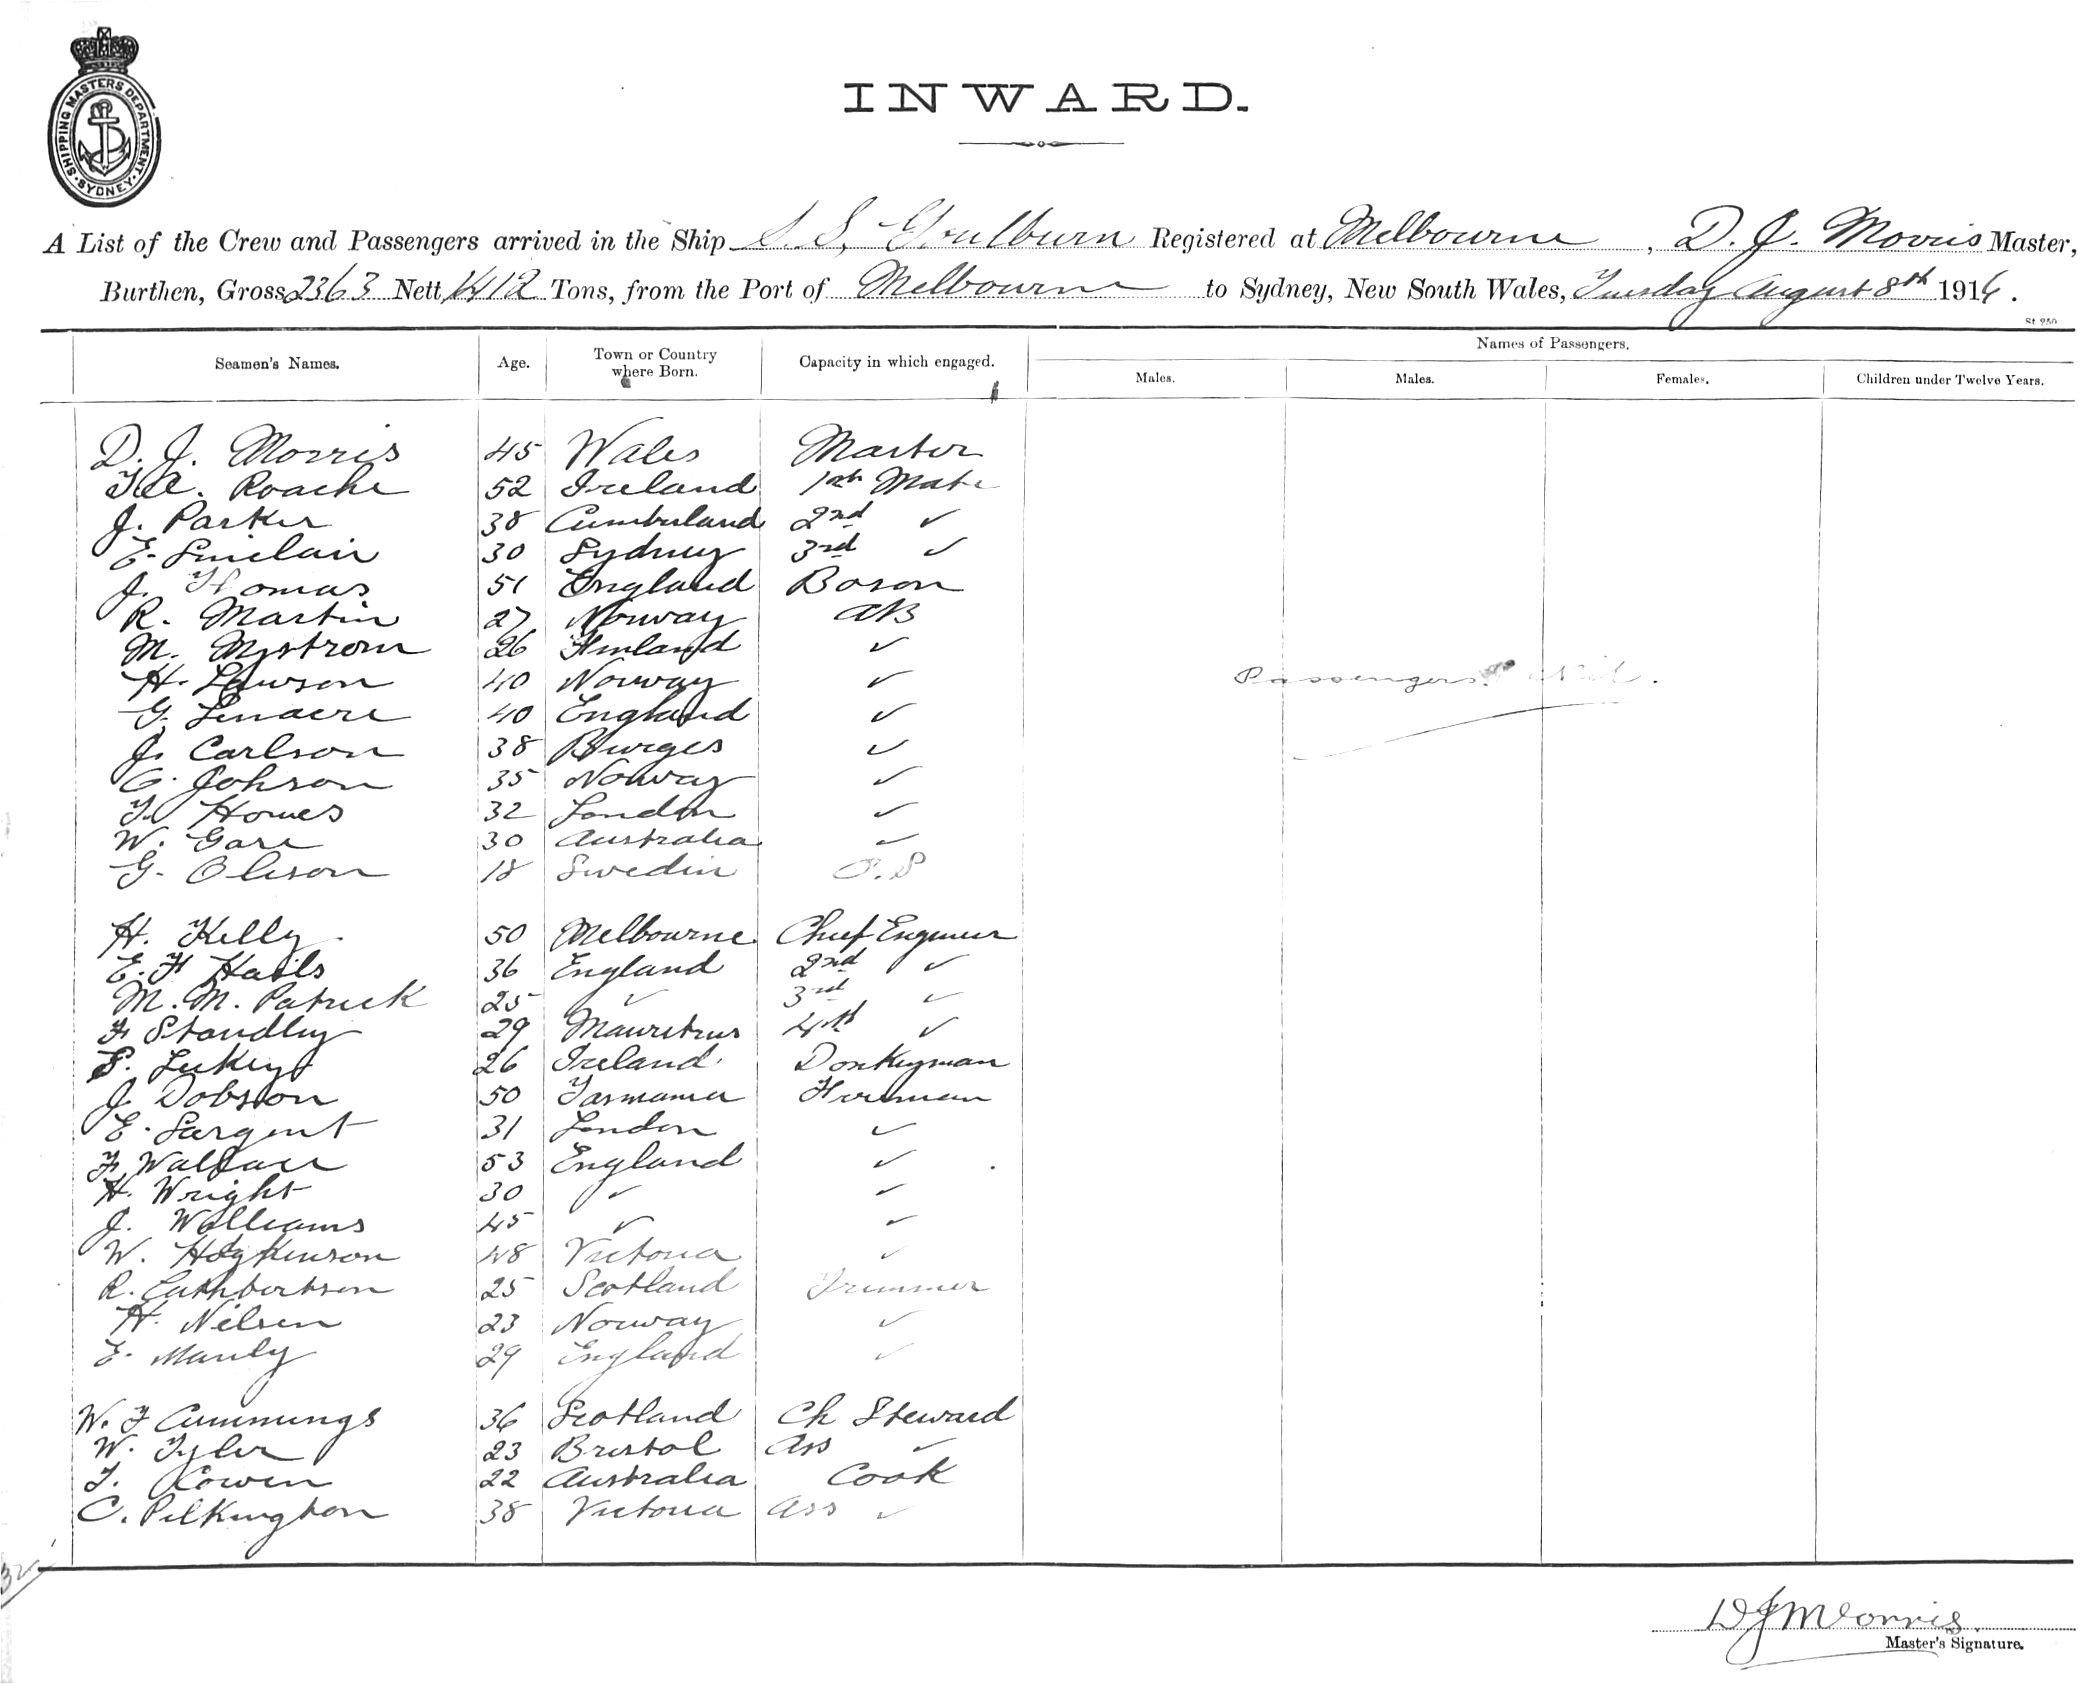 SHIPPING MASTERS DEPARTMENT. SYDNEY.
INWARD.
A List of the Crew and Passengers arrived in the Ship S.S. Goulburn Registered at Melbourne, D. J. Morris Master,
Burthen, Gross 2363 Nett 1412 Tons, from the Port of Melbourne to Sydney, New South Wales, Tuesday August 8th 1916.
St 250
Names of Passengers.
Seamen's Names. Age. Town or Country where Born. Capacity in which engaged. Males. Males. Females. Children under Twelve Years.
D. J. Morris 45 Wales Master
Roache 52 Ireland 1st Mate
J. Parker 38 Cumberland 2nd ✓
E. Sinclair 30 Sydney 3rd ✓
J. Thomas 51 England Boson
R. Martin 27 Norway AB
M. Mystrom 26 Finland ✓
H. Lawson 40 Norway ✓
Passengers Nil.
G. Linacre 40 England ✓
J. Carlson 38 Burges ✓
C. Johson 35 Norway ✓
T. Homes 32 London ✓
W. Gare 30 Australia ✓
G. Oleson 18 Swedin O.S
H. Kelly 50 Melbourne Chief Engineer
E. F Hails 36 England 2nd ✓
M. M. Patrick 25 ✓ 3rd ✓
F Standley 29 Mauritius 4th ✓
S. Leckey 26 Ireland Donkeyman
J. Dobson 50 Tasmania Fireman
E. Sargent 31 London ✓
F Wallace 53 England ✓
H. Wright 30 ✓ ✓
J. Williams 45 ✓ ✓
W. Hogkinson 48 Victoria ✓
R. Cuthbertson 25 Scotland Trimmer
H. Nilsen 23 Norway ✓
E. Manly 29 England ✓
W. F Cummings 36 Scotland Ch Steward
W. Tyler 23 Bristol Ass ✓
T. Cowen 22 Australia Cook
C. Pilkington 38 Victoria Ass ✓
32
D J Morris
Master's Signature.